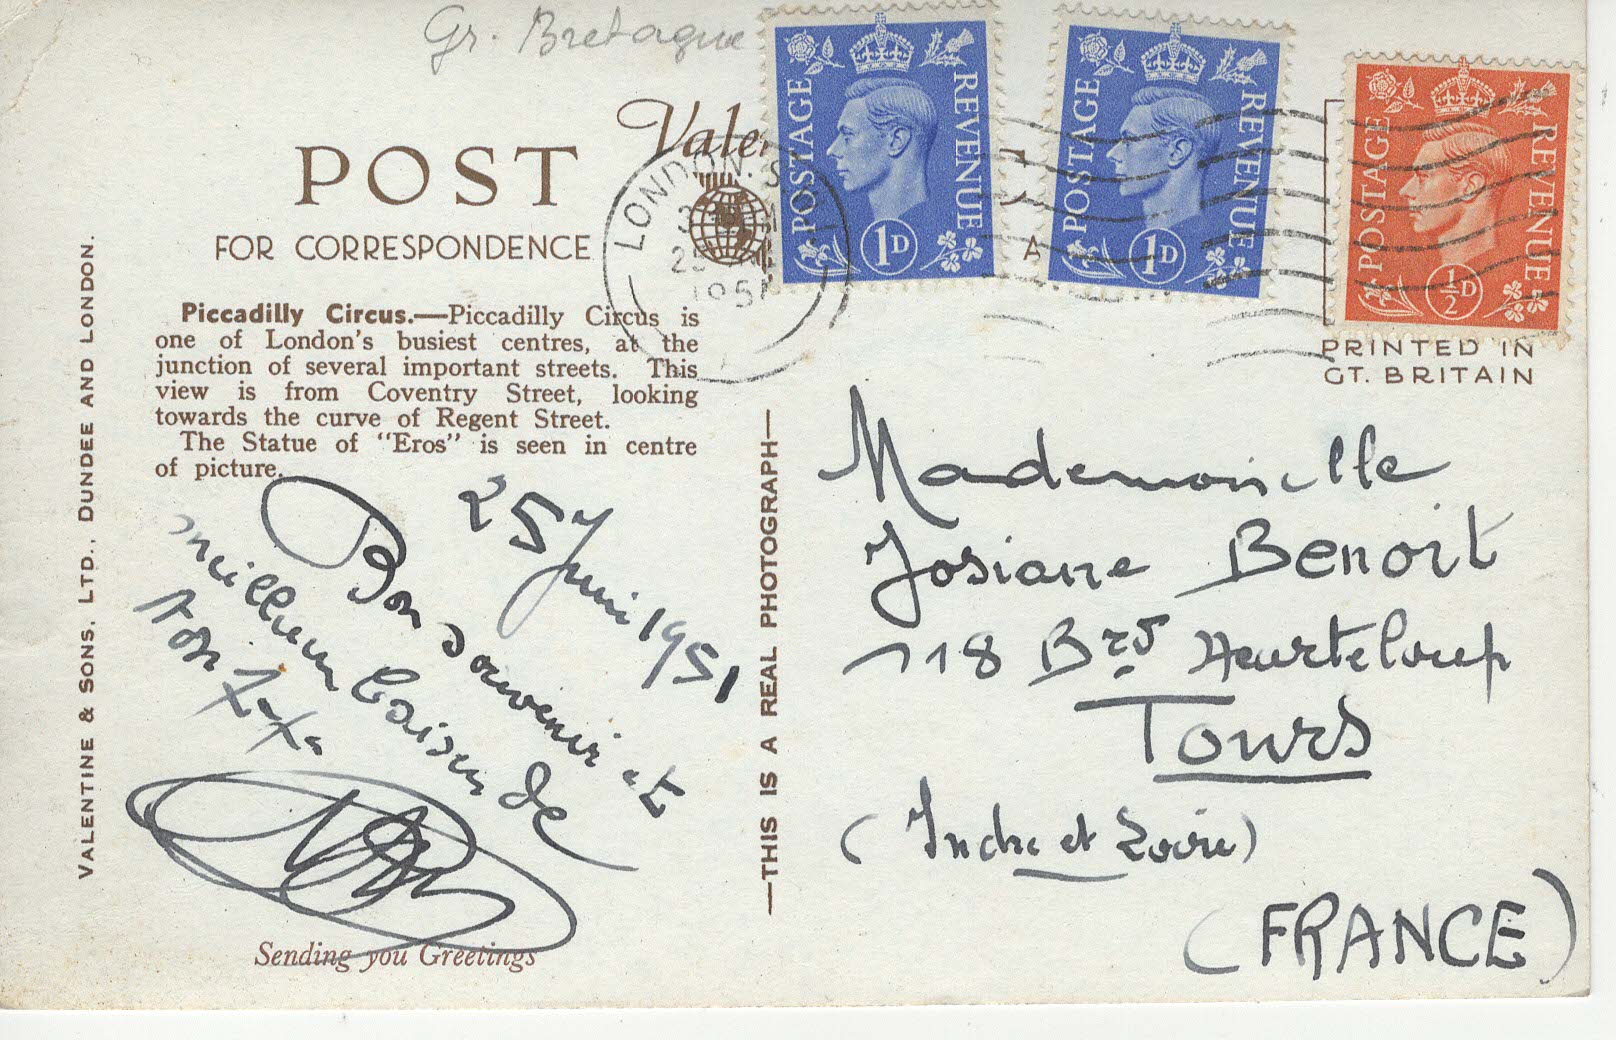 Gr. Bretagne
POST
FOR CORRESPONDENCE
Piccadilly Circus.—Piccadilly Circus is
one of London's busiest centres, at the
junction of several important streets. This
view is from Coventry Street, looking
towards the curve of Regent Street.
The Statue of "Eros" is seen in centre
of picture.
25 Juin 1951
Bon souvenir et
meilleurs baisers de
ton
Sending you Greetings
VALENTINE & SONS. LTD., DUNDEE AND LONDON.
—THIS IS A REAL PHOTOGRAPH—
LONDON. S
1951
POSTAGE REVENUE
1D
POSTAGE REVENUE
1D
POSTAGE REVENUE
½D
PRINTED IN
GT. BRITAIN
Mademoiselle
Josiane Benoit
118 Brd Heurteloup
Tours
(Indre et Loire)
(FRANCE)